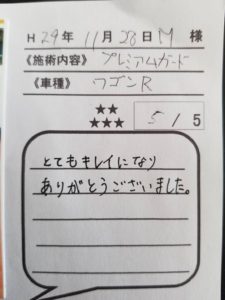 H 29年 11月 28日 M 様
《施術内容》 プレミアムガード
《車種》 ワゴンR
★★
★★★ 5 / 5
とてもキレイになり
ありがとうございました。